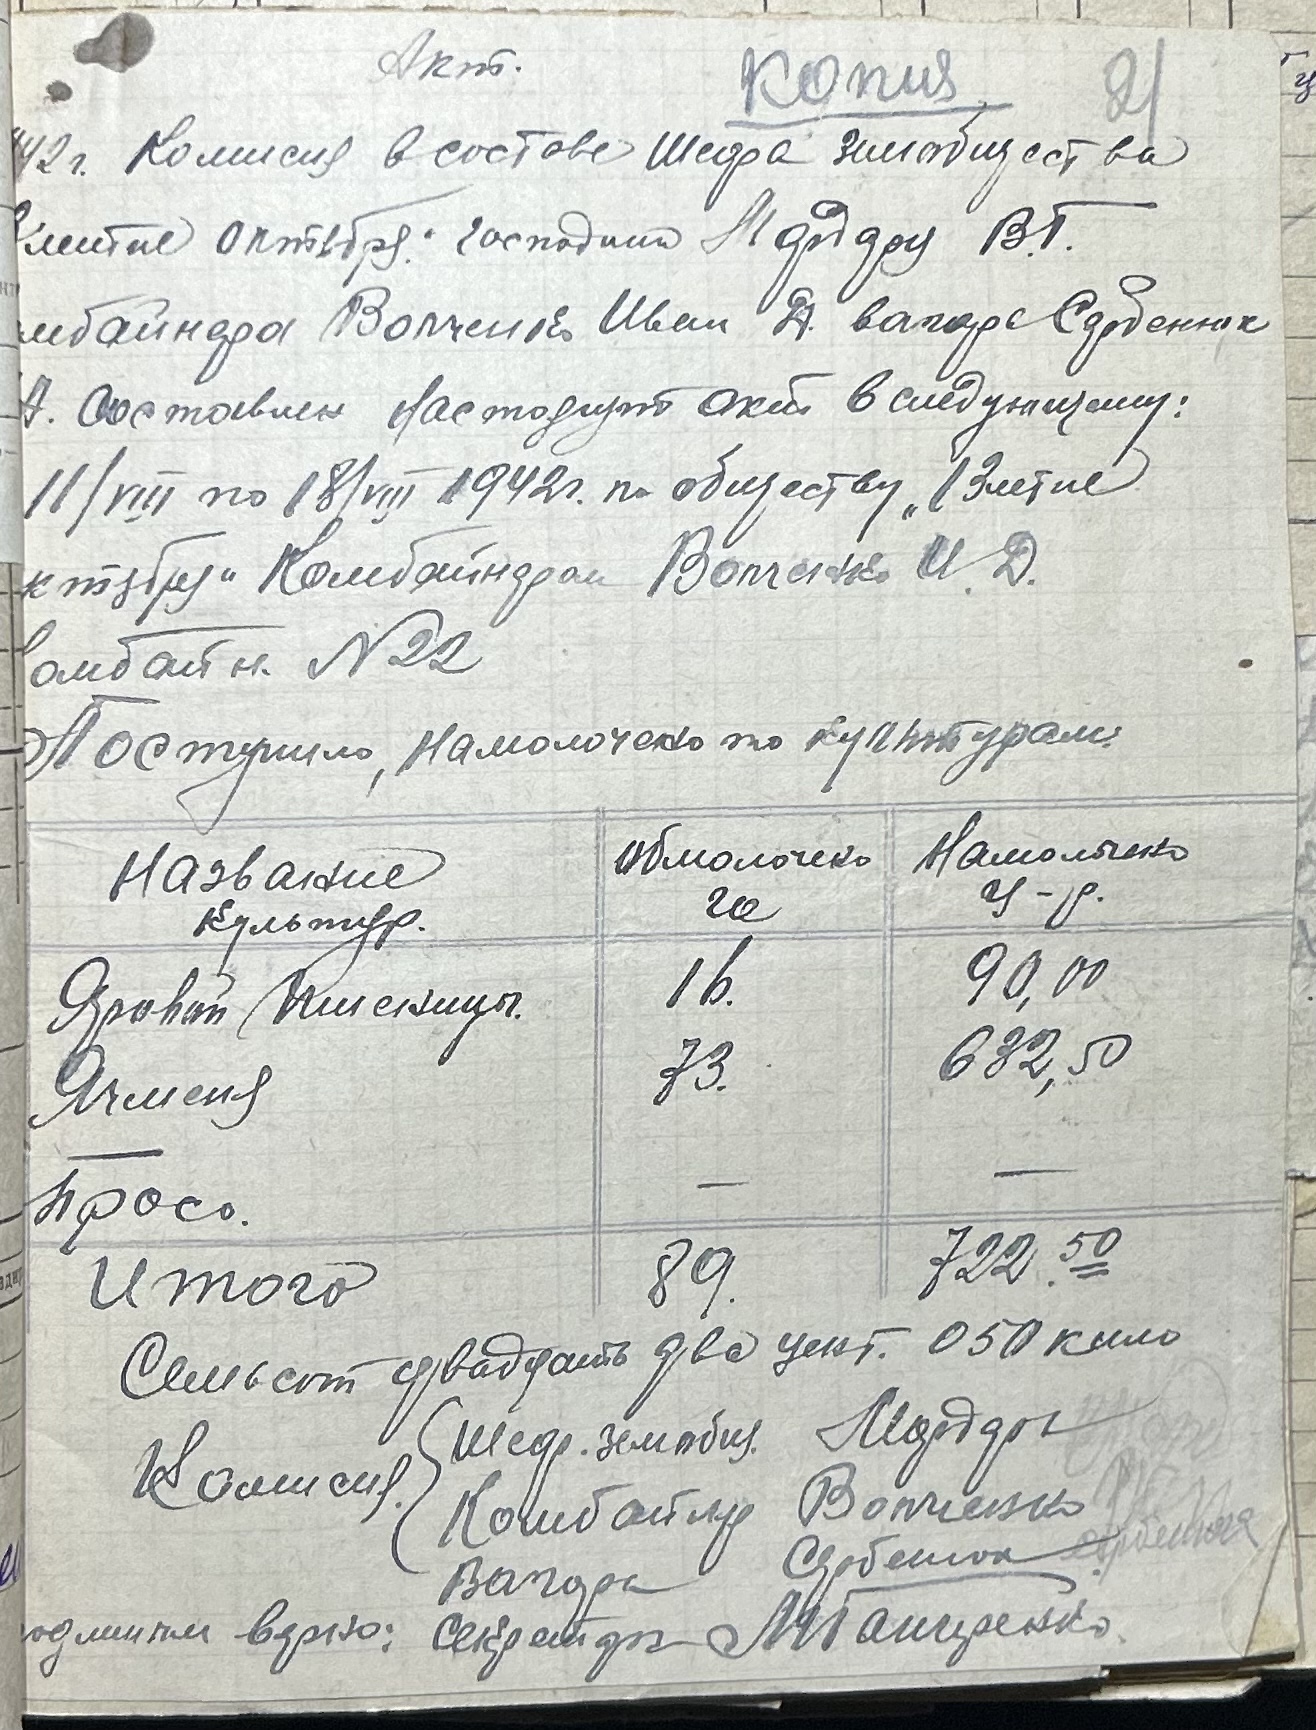 Акт.
Копия
21
42г. Комисия в составе Шефа земобщества
летие октября." господина В.Г.
мбайнера Волченко Иван Д. вагаря Сербенюк
А. Составлен настоящий акт в следующему:
11/VIII по 18/VIII 1942г. по обществу „13летие
ктября" Комбайнером Волченко И.Д.
омбайн. №22
Поступило, намолочено по культурам:
Название культур. обмолочено га Намолочено ц-р.
Яровой Пшеницы. 16. 90,00
Ячменя 73. 632,50
Просо. — —
Итого 89. 722.50
Семьсот двадцать два цент. 050 кило
Комисия. Шеф. земобщ.
Комбайнер Волченко
Вагаря Сербенюк
одлинным верно: Секретарь